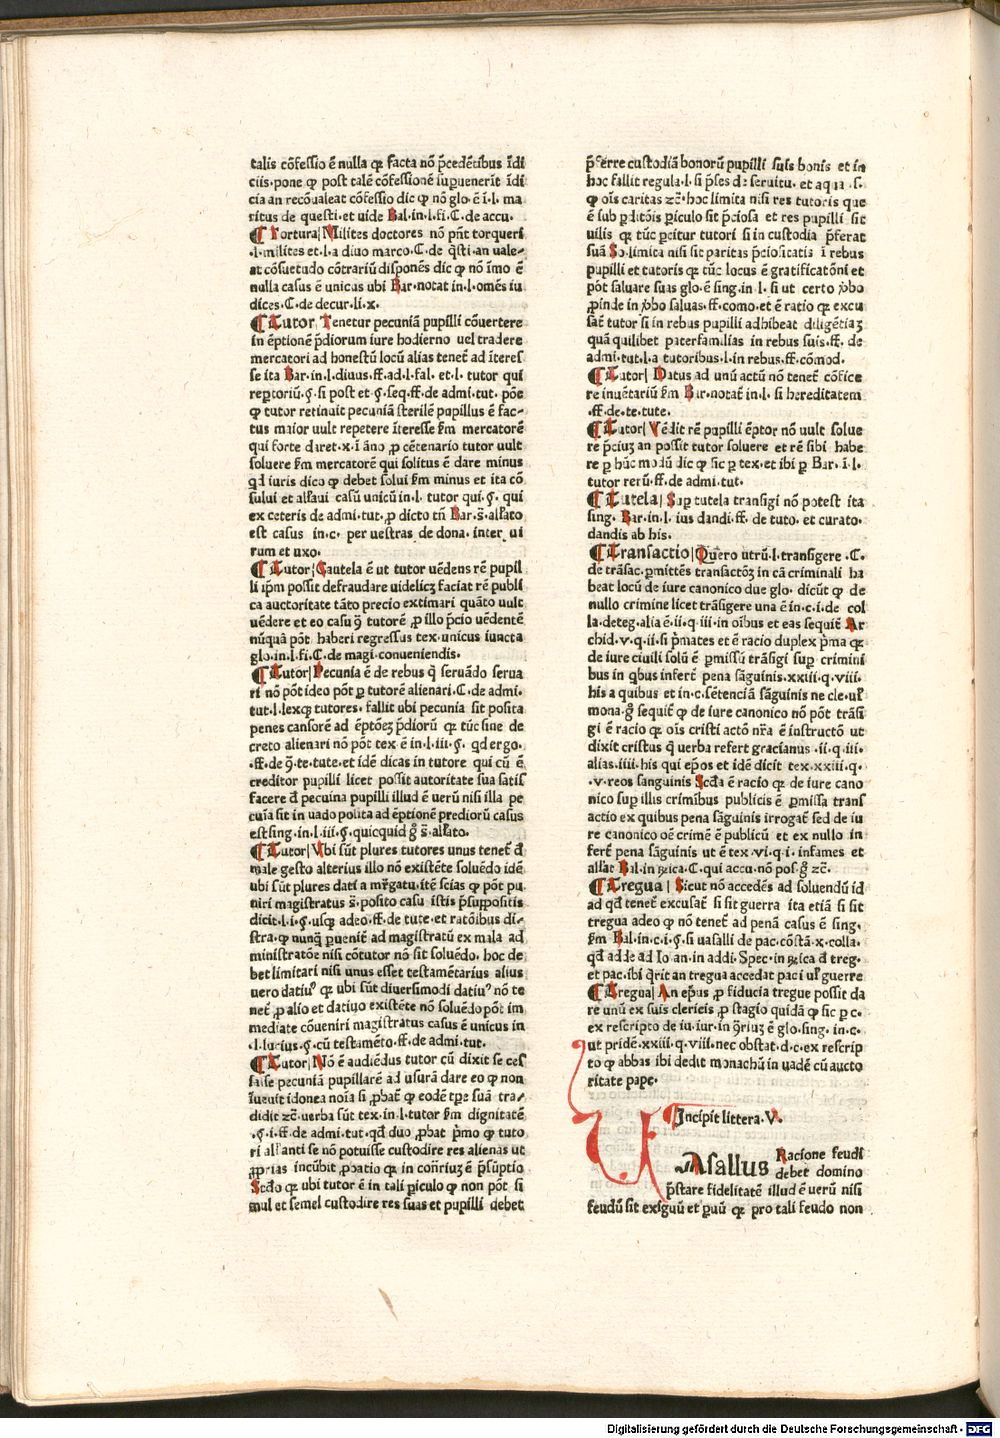 talis cõfessio ẽ nulla qꝛ facta nõ p̃cedẽtibus ĩdi
ciis·pone ꝙ post talẽ cõfessionẽ supuenerĩt ĩdi
cia an recõualeat cõfessio dic ꝙ nõ glo·ẽ ĩ·l·ma
ritus de questi·et uide Bal·in·l·fi·C·de accu·
¶ Tortura| Milites doctores nõ pñt torqueri
·l·milites et·l·a diuo marco·C·de q̃sti·an uale-
at cõsuetudo cõtrariũ disponẽs dic ꝙ nõ ĩmo ẽ
nulla casus ẽ unicus ubi Bar·notat in·l·omẽs iu
dices·C·de decur·li·x·
¶ Tutor Tenetur pecuniã pupilli cõuertere
in ẽptionẽ p̃diorum iure hodierno uel tradere
mercatori ad honestũ locũ alias tenet̃ ad ĩteres
se ita Bar·in·l·diuus·ff·ad·l·fal·et·l·tutor qui
reptoriũ·§·si post et·§·seq·ff·de admi·tut·põe
ꝙ tutor retinuit pecuniã sterilẽ pupillus ẽ fac-
tus maior uult repetere ĩteresse ẜm mercatorẽ
qui forte daret·x·ĩ ãno ꝓ cẽtenario tutor uult
soluere ẜm mercatorẽ qui solitus ẽ dare minus
qd̃ iuris dico ꝙ debet solui ẜm minus et ita cõ
sului et allaui casũ unicũ in·l·tutor qui·§·qui
ex ceteris de admi·tut·ꝓ dicto tñ Bar·s̃·allato
est casus in·c·per uestras de dona·inter ui
rum et uxo·
¶ Tutor| Cautela ẽ ut tutor uẽdens rẽ pupil
li ip̃m possit defraudare uidelicꝫ faciat rẽ publi
ca auctoritate tãto precio extimari quãto uult
uẽdere et eo casu ꝯ̃ tutorẽ ꝓ illo p̃cio uẽdentẽ
nũquã põt haberi regressus tex·unicus iuncta
glo·in·l·fi·C·de magi·conueniendis·
¶ Tutor| Pecunia ẽ de rebus q̃ seruãdo serua
ri nõ põt ideo põt ꝑ tutorẽ alienari·C·de admi·
tut·l·lexqꝫ tutores·fallit ubi pecunia sit posita
penes cansorẽ ad ẽptõeꝫ p̃diorũ qꝛ tũc sine de
creto alienari nõ põt tex ẽ in·l·iii·§·qd ergo·
·ff·de ꝯ̃·te·tute·et idẽ dicas in tutore qui cũ ẽ
creditor pupilli licet possit autoritate sua satis
facere d̃ pecuina pupilli illud ẽ uerũ nisi illa pe
cuĩa sit in uado posita ad ẽptionẽ prediorũ casus
est sing·in·l·iii·§·quicquid g̊ s̃·allato·
¶ Tutor| Vbi sũt plures tutores unus tenet̃ d̃
male gesto alterius illo nõ existẽte soluẽdo idẽ
ubi sũt plures dati a mr̃gatu·itẽ scias ꝙ põt pu
niri magistratus s̃·posito casu istis p̃suppositis
dicit·l·i·§·usqꝫ adeo·ff·de tute·et ratõibus di-
stra·ꝙ nunq̃ ꝑuenit̃ ad magistratũ ex mala ad
ministratõe nisi cõtutor nõ sit soluẽdo·hoc de
bet limitari nisi unus esset testamẽtarius alius
uero datiuꝰ qꝛ ubi sũt diuersimodi datiuꝰ nõ te
net̃ ꝓ alio et datiuo existẽte nõ soluẽdo põt im
mediate cõueniri magistratus casus ẽ unicus in
·l·lucius·§·cũ testamẽto·ff·de admi·tut·
¶ Tutor| Nõ ẽ audiẽdus tutor cũ dixit se ces
sasse pecuniã pupillarẽ ad usurã dare eo ꝙ non
ĩuenit idonea noĩa si ꝓbat̃ ꝙ eodẽ tꝑe suã tra-
didit zc̃·uerba sũt tex·in·l·tutor ẜm dignitatẽ
·§·i·ff·de admi·tut·qd̃ duo ꝓbat p̃mo ꝙ tuto
ri allãnti se nõ potuisse custodire res alienas ut
ꝓprias incũbit ꝓbatio qꝛ in cõrriuꝫ ẽ p̃suptio
Scd̃o qꝛ ubi tutor ẽ in tali ꝑiculo ꝙ non põt si
mul et semel custodire res suas et pupilli debet
p̃ferre custodiã bonorũ pupilli suis bonis et in
hoc fallit regula·l·si p̃ses de seruitu·et aqua·s·
ꝙ oĩs caritas zc̃·hoc limita nisi res tutoris que
ẽ sub ꝑditõis ꝑiculo sit p̃ciosa et res pupilli sit
uilis qꝛ tũc ꝑcitur tutori si in custodia p̃ferat
suã So·limita nisi sit paritas p̃ciositatis ĩ rebus
pupilli et tutoris qꝛ tũc locus ẽ gratificatõni et
põt saluare suas glo·ẽ sing·in·l·si ut certo ꝓbo
ꝓinde in ꝓbo saluas·ff·como·et ẽ ratio qꝛ excu
sat̃ tutor si in rebus pupilli adhibeat diligẽtiaꝫ
quã quilibet paterfamilias in rebus suis·ff·de
admi·tut·l·a tutoribus·l·in rebus·ff·cõmod·
¶ Tutor| Datus ad unũ actũ nõ tenet̃ cõfice
re inuẽtariũ ẜm Bar·notat̃ in·l·si hereditatem
·ff·de·te·tute·
¶ Tutor| Vẽdit rẽ pupilli ẽptor nõ uult solue
re p̃ciuꝫ an possit tutor soluere et rẽ sibi habe
re ꝑ hũc modũ dic ꝙ sic ꝑ tex·et ibi ꝑ Bar·ĩ·l·
tutor rerũ·ff·de admi·tut·
¶ Tutela| Sup tutela transigi nõ potest ita
sing·Bar·in·l·ius dandi·ff·de tuto·et curato·
dandis ab his·
¶ Transactio| Quero utrũ·l·transigere·C·
de trãsac·ꝑmittẽs transactõꝫ in cã criminali ha
beat locũ de iure canonico due glo·dicũt ꝙ de
nullo crimine licet trãsigere una ẽ in·c·i·de col
la·deteg·alia ẽ·ii·q·iii·in oĩbus et eas sequit̃ Ar
chid·v·q·ii·si p̃mates et ẽ racio duplex p̃ma qꝛ
de iure ciuili solũ ẽ ꝑmissũ trãsigi sup crimini
bus in q̃bus infert̃ pena sãguinis·xxiii·q·viii·
his a quibus et in·c·sẽtenciã sãguinis ne cle·ul̃
mona·g̊ sequit̃ ꝙ de iure canonico nõ põt trãsi
gi ẽ racio qꝛ oĩs cristi actõ nr̃a ẽ instructõ ut
dixit cristus q̃ uerba refert gracianus·ii·q·iii·
alias·iiii·his qui ep̃os et idẽ dicit tex·xxiii·q·
·v·reos sanguinis Scd̃a ẽ racio qꝛ de iure cano
nico sup illis crimĩbus publicis ẽ ꝑmissa trans
actio ex quibus pena sãguinis irrogat̃ sed de iu
re canonico oẽ crimẽ ẽ publicũ et ex nullo in
fert̃ pena sãguinis ut ẽ tex·vi·q·i·infames et
allat Bal·in rꝛica·C·qui accu·nõ pos·g̊ zc̃·
¶ Tregua| Sicut nõ accedẽs ad soluendũ id
ad qd̃ tenet̃ excusat̃ si sit guerra ita etiã si sit
tregua adeo ꝙ nõ tenet̃ ad penã casus ẽ sing·
ẜm Bal·in·c·i·§·si uasalli de pac·cõstã·x·colla·
qd̃ adde ad Io·an·in addi·Spec·in rꝛica d̃ treg·
et pac·ibi q̃rit an tregua accedat paci ul̃ guerre
¶ Tregua| An ep̃us ꝓ fiducia tregue possit da
re unũ ex suis clericis ꝓ stagio quidã ꝙ sic ꝑ c·
ex rescripto de iu·iur·in ꝯ̃riuꝫ ẽ glo·sing·in·c·
ut pridẽ·xxiii·q·viii·nec obstat·d·c·ex rescrip
to ꝙ abbas ibi dedit monachũ in uadẽ cũ aucto
ritate pape·
¶ Incipit littera·V·
VAsallus Racione feudi
debet domino
p̃stare fidelitatẽ illud ẽ uerũ nisi
feudũ sit exiguũ et ꝑuũ qꝛ pro tali feudo non
Digitalisierung gefördert durch die Deutsche Forschungsgemeinschaft - DFG